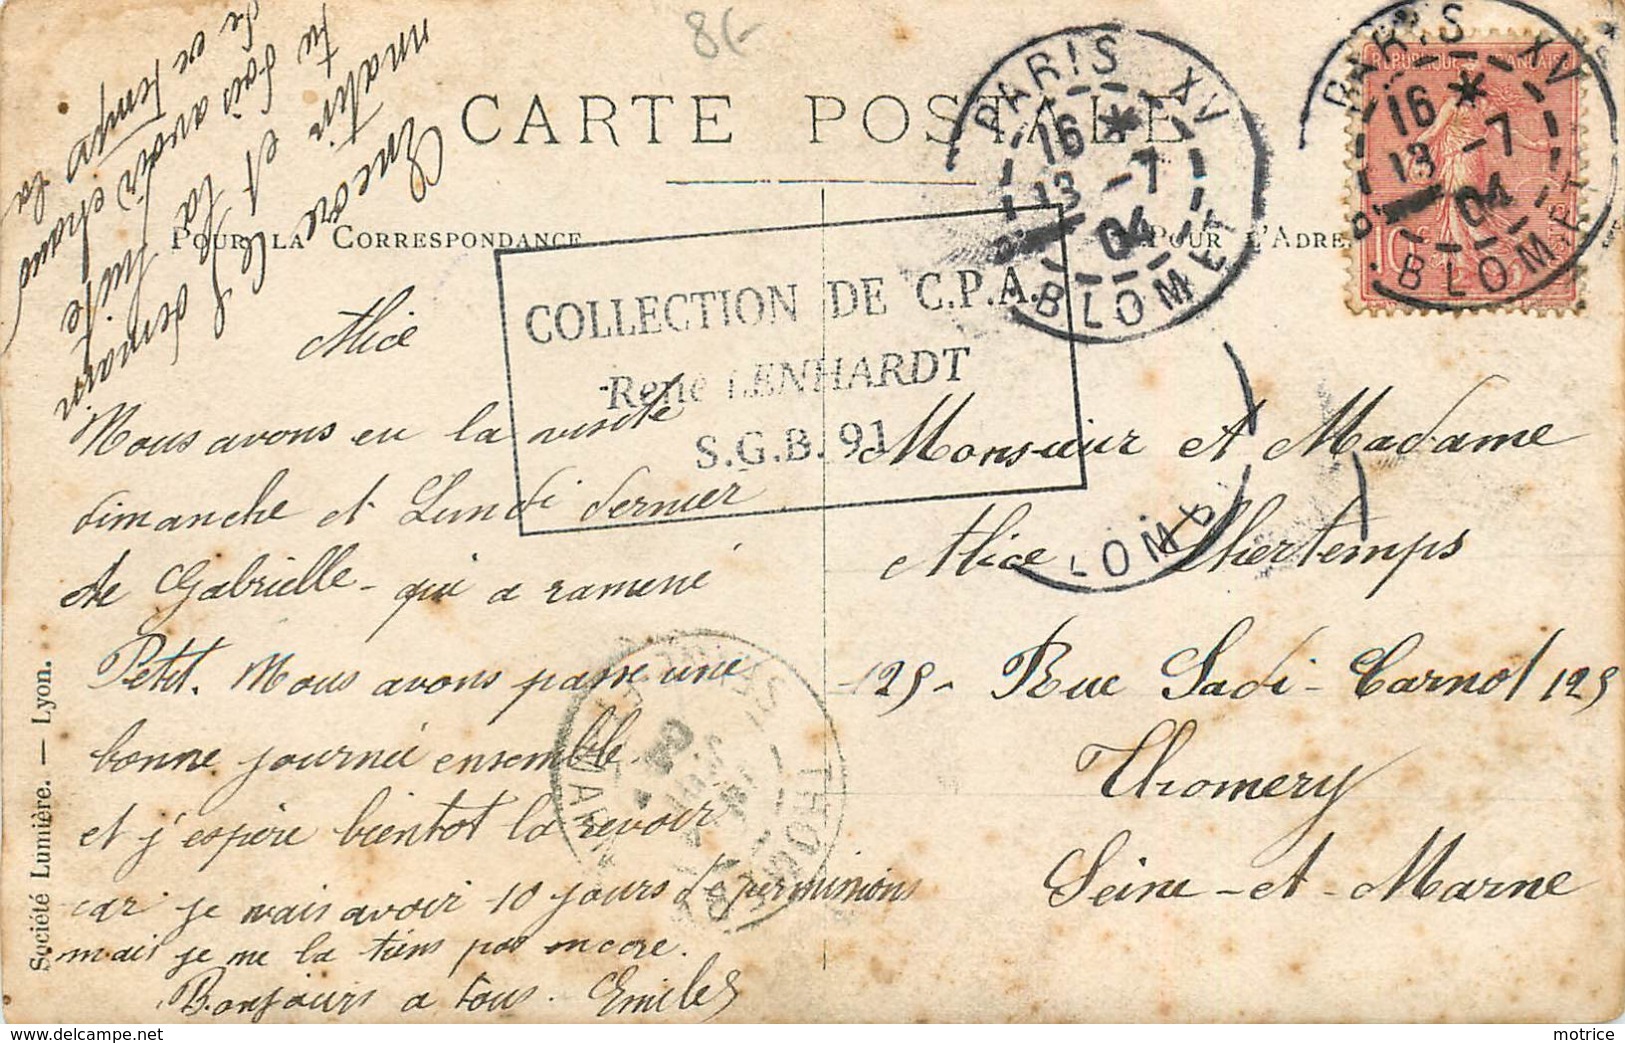 86-
CARTE POSTALE
POUR LA CORRESPONDANCE
POUR L'ADRE
PARIS XV
16 *
13 -7
04
BLOMET
REPUBLIQUE FRANÇAISE
PARIS XV
16 *
13 -7
04
BLOMET
COLLECTION DE C.P.A.
René LENHARDT
S.G.B. 91
Encore le
matin et la suite
tu dois avoir chaud
de ce temps la
Alice
Nous avons eu la visite
dimanche et Lundi dernier
de Gabrielle - qui a ramené
Petit. Nous avons passé une
bonne journée ensemble.
et j'espère bientot la revoir
car je vais avoir 10 jours de permissions
mais je ne la tiens pas encore.
Bonjours a tous. Emile
Monsieur et Madame
Alice
125 - Rue Sadi-Carnot 125
Thomery
Seine-et-Marne
LOME
Société Lumière. — Lyon.
motrice